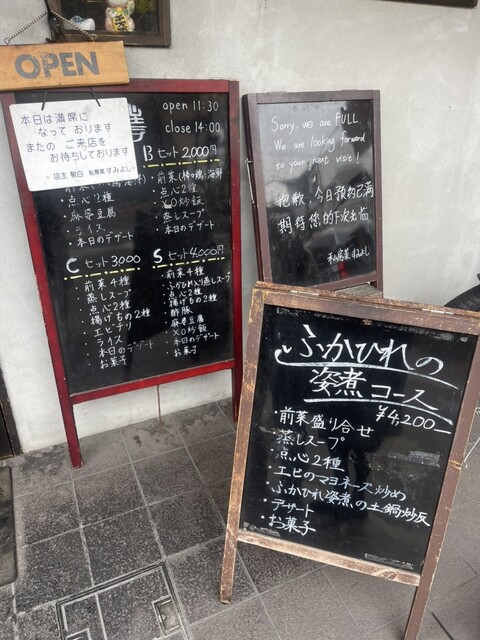 OPEN
本日は満席に
なって おります
またの ご来店を
お待ちしております
店主 敬白 私房菜 すみよし
open 11:30
close 14:00
Bセット 2,000円
・点心2種
・麻婆豆腐
・ライス
・本日のデザート
・点心2種
・XO炒飯
・蒸しスープ
・本日のデザート
Cセット 3,000
・前菜4種
・蒸しスープ
・点心2種
・揚げもの2種
・エビチリ
・ライス
・本日のデザート
・お菓子
Sセット 4,000円
・前菜4種
・ふかひれ入り蒸しスープ
・点心2種
・揚げもの2種
・酢豚
・麻婆豆腐
・XO炒飯
・本日のデザート
・お菓子
Sorry, we are FULL.
We are looking forward
to your next visit!
抱歉,今日预约已满
期待您的下次光临
私房菜 すみよし
ふかひれの
姿煮コース
¥4,200-
・前菜盛り合せ
・蒸しスープ
・点心2種
・エビのマヨネーズ炒め
・ふかひれ姿煮の土鍋炒反
・デザート
・お菓子